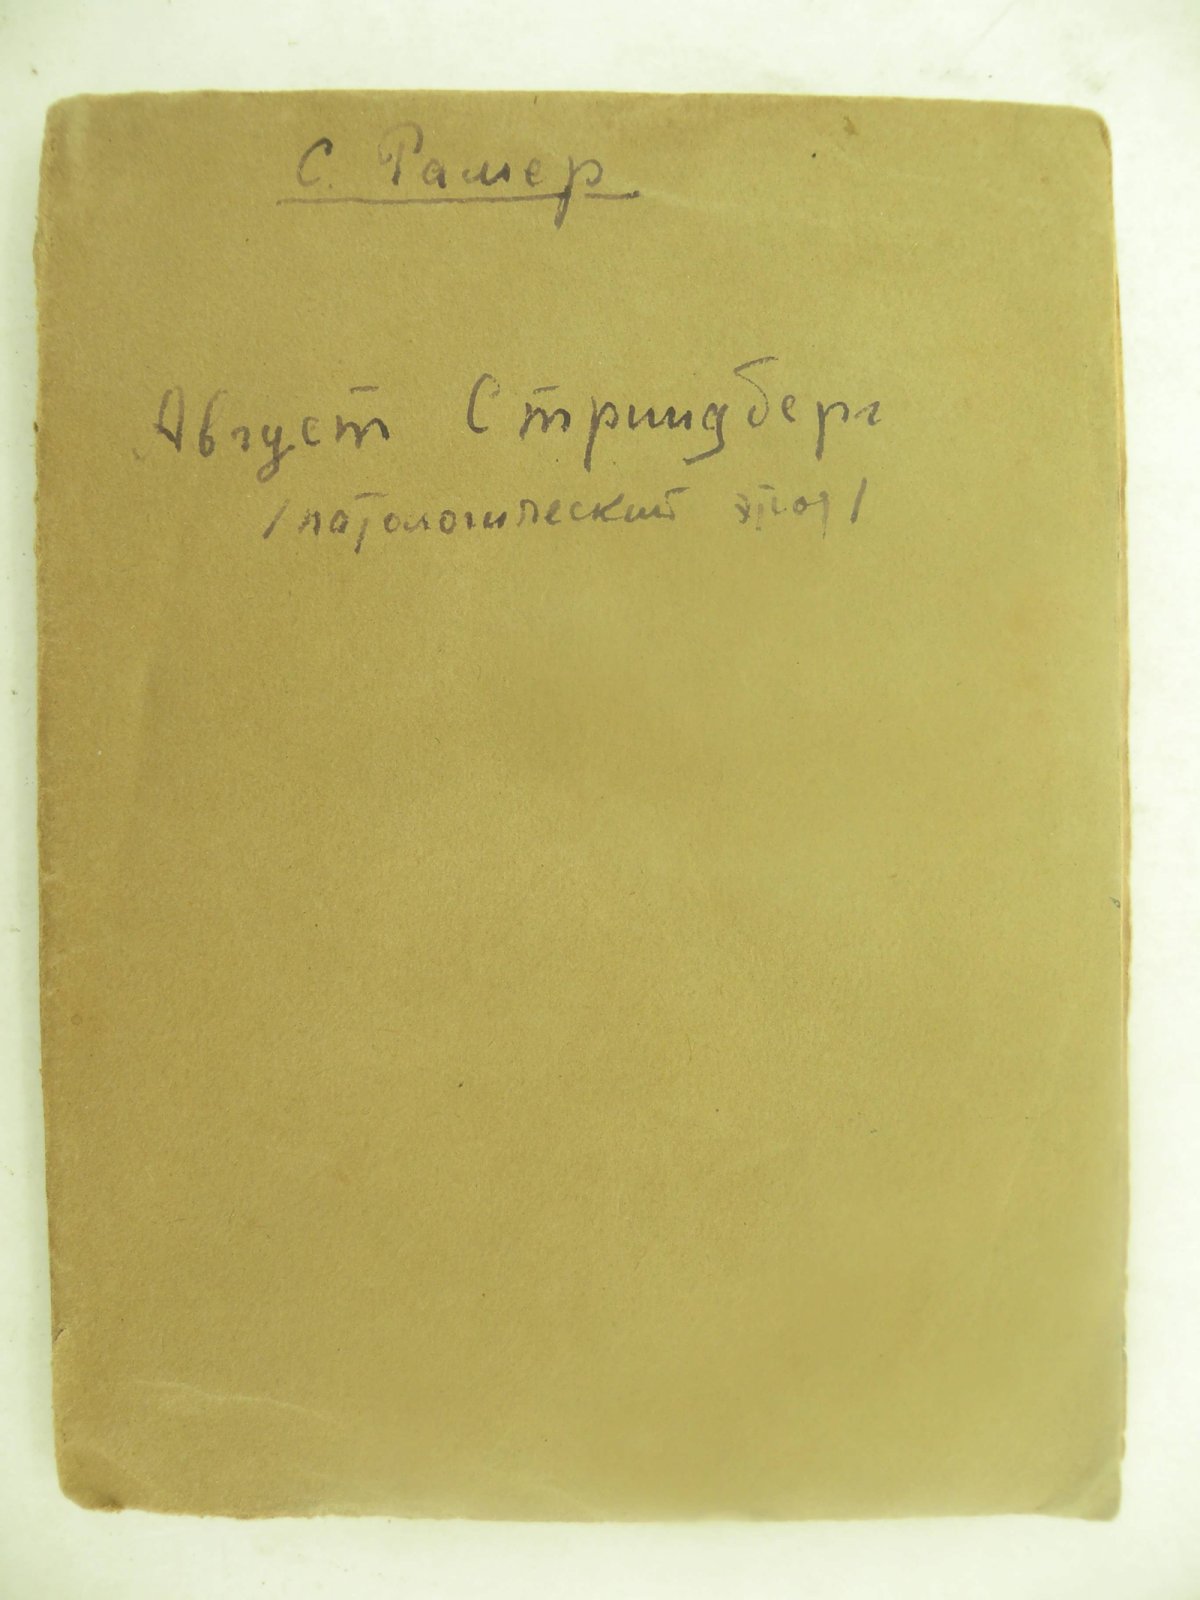 С. Рамер
Август Стриндберг
/патологический этюд/